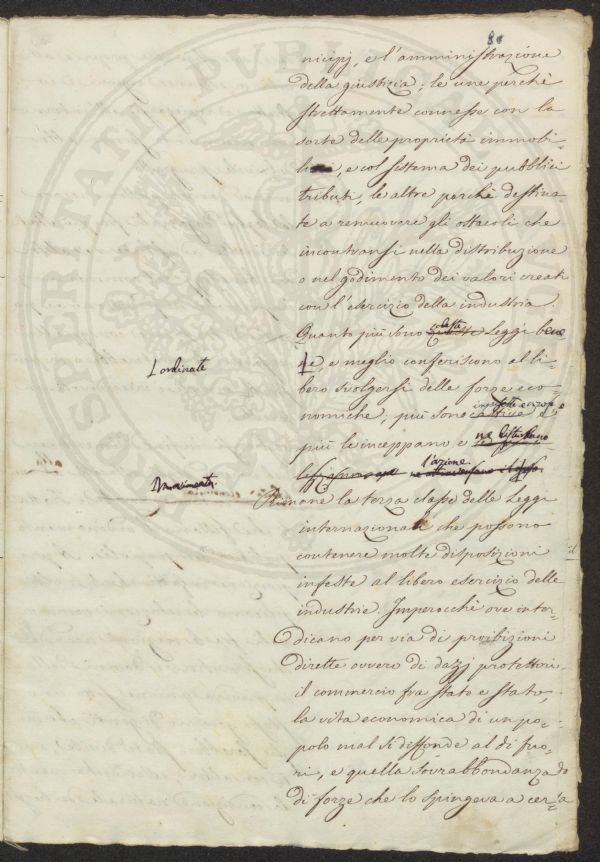 80
nicipj, e l'amministrazione
della giustizia; le une perchè
strettamente connesse con la
sorte delle proprietà immobi-
, e col sistema dei pubblici
tributi, le altre perchè destina-
te a remuovere gli ostacoli che
incontransi nella distribuzione
o nel godimento dei valori creati
con l'esercizio della industria.
codeste
Quanto più sono queste Leggi bene
Lordinate
, e meglio conferiscono al li-
bero svolgersi delle forze eco-
imperfette e rozze e
nomiche; più sono cattive e
più le inceppano e ne disturbano
l'azione.
movimenti
Rimane la terza classe delle Leggi
internazionali che possono
contenere molte disposizioni
infeste al libero esercizio delle
industrie. Imperocchè ove inter-
dicano per via di proibizioni
dirette ovvero di dazj protettori
il commercio fra Stato e Stato,
la vita economica di un po-
polo mal si diffonde al di fuo-
ri, e quella sovrabbondanza
di forze che lo spingeva a cer-
PROSPERITATI PUBLICAE